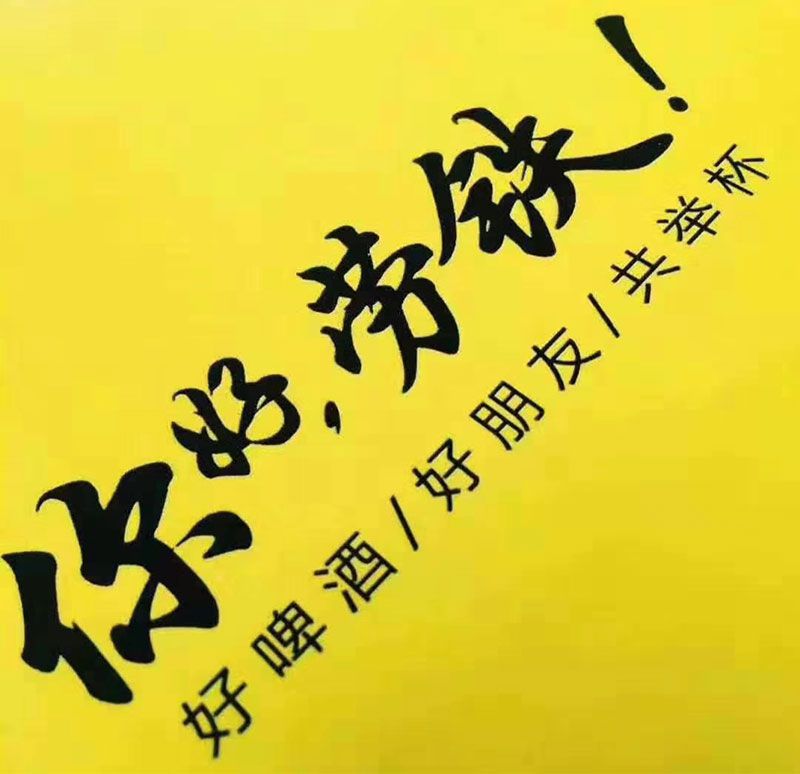 你好,劳铁!
好啤酒/好朋友/共举杯